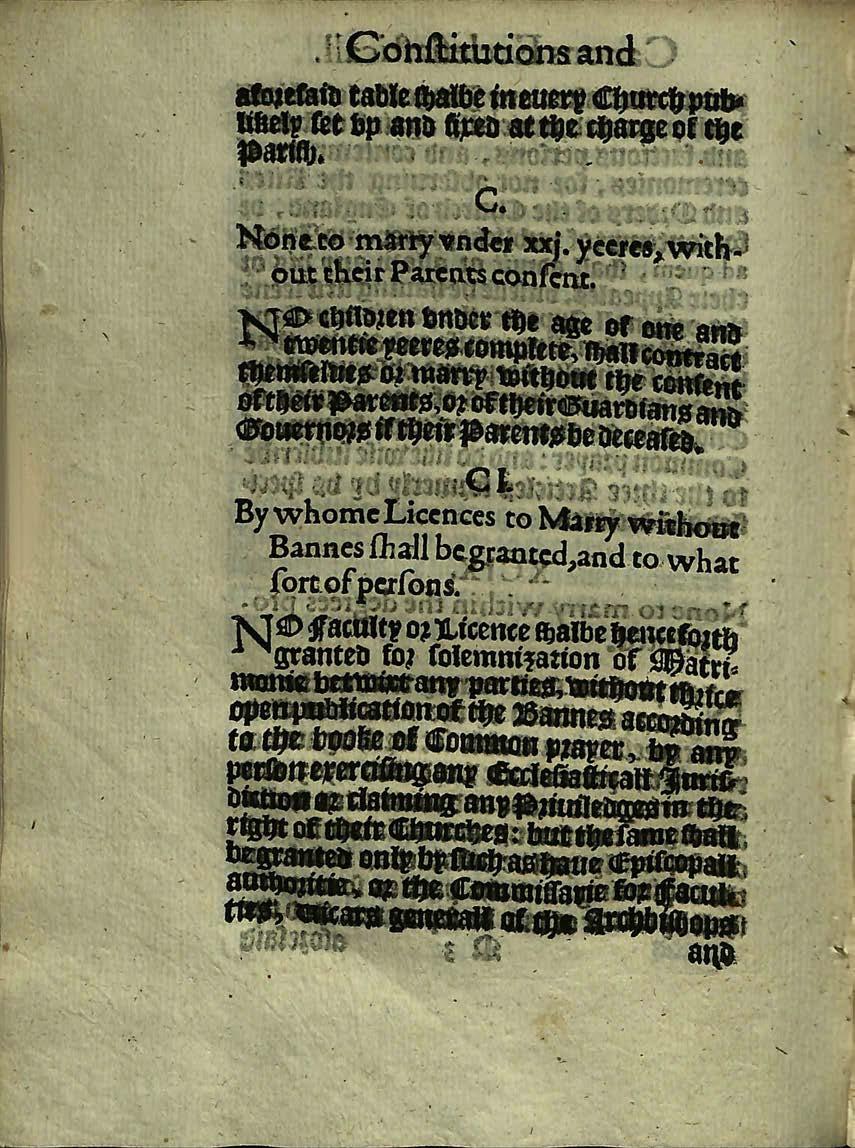 Conſtitutions and
aforeſaid table ſhalbe in euery Church pub-
likely ſet vp and fixed at the charge of the
Pariſh.
C.
None to marry vnder xxj. yeeres, with-
out their Parents conſent.
NO children vnder the age of one and
twentie yeeres complete, ſhall contract
themſelues or marry without the conſent
of their Parents, or of their Guardians and
Gouernors if their Parents be deceaſed.
CI.
By whome Licences to Marry without
Bannes ſhall be granted, and to what
ſort of perſons.
NO Faculty or Licence ſhalbe henceforth
granted for ſolemnization of Matri-
monie betwixt any parties, without thrice
open publication of the Bannes according
to the booke of Common prayer, by any
perſon exerciſing any Eccleſiaſticall Juriſ-
diction or claiming any Priuiledges in the
right of their Churches: but the ſame ſhall
be granted only by ſuch as haue Epiſcopall
authoritie, or the Commiſſarie for Facul-
ties, vicars generall of the Archbiſhops
and